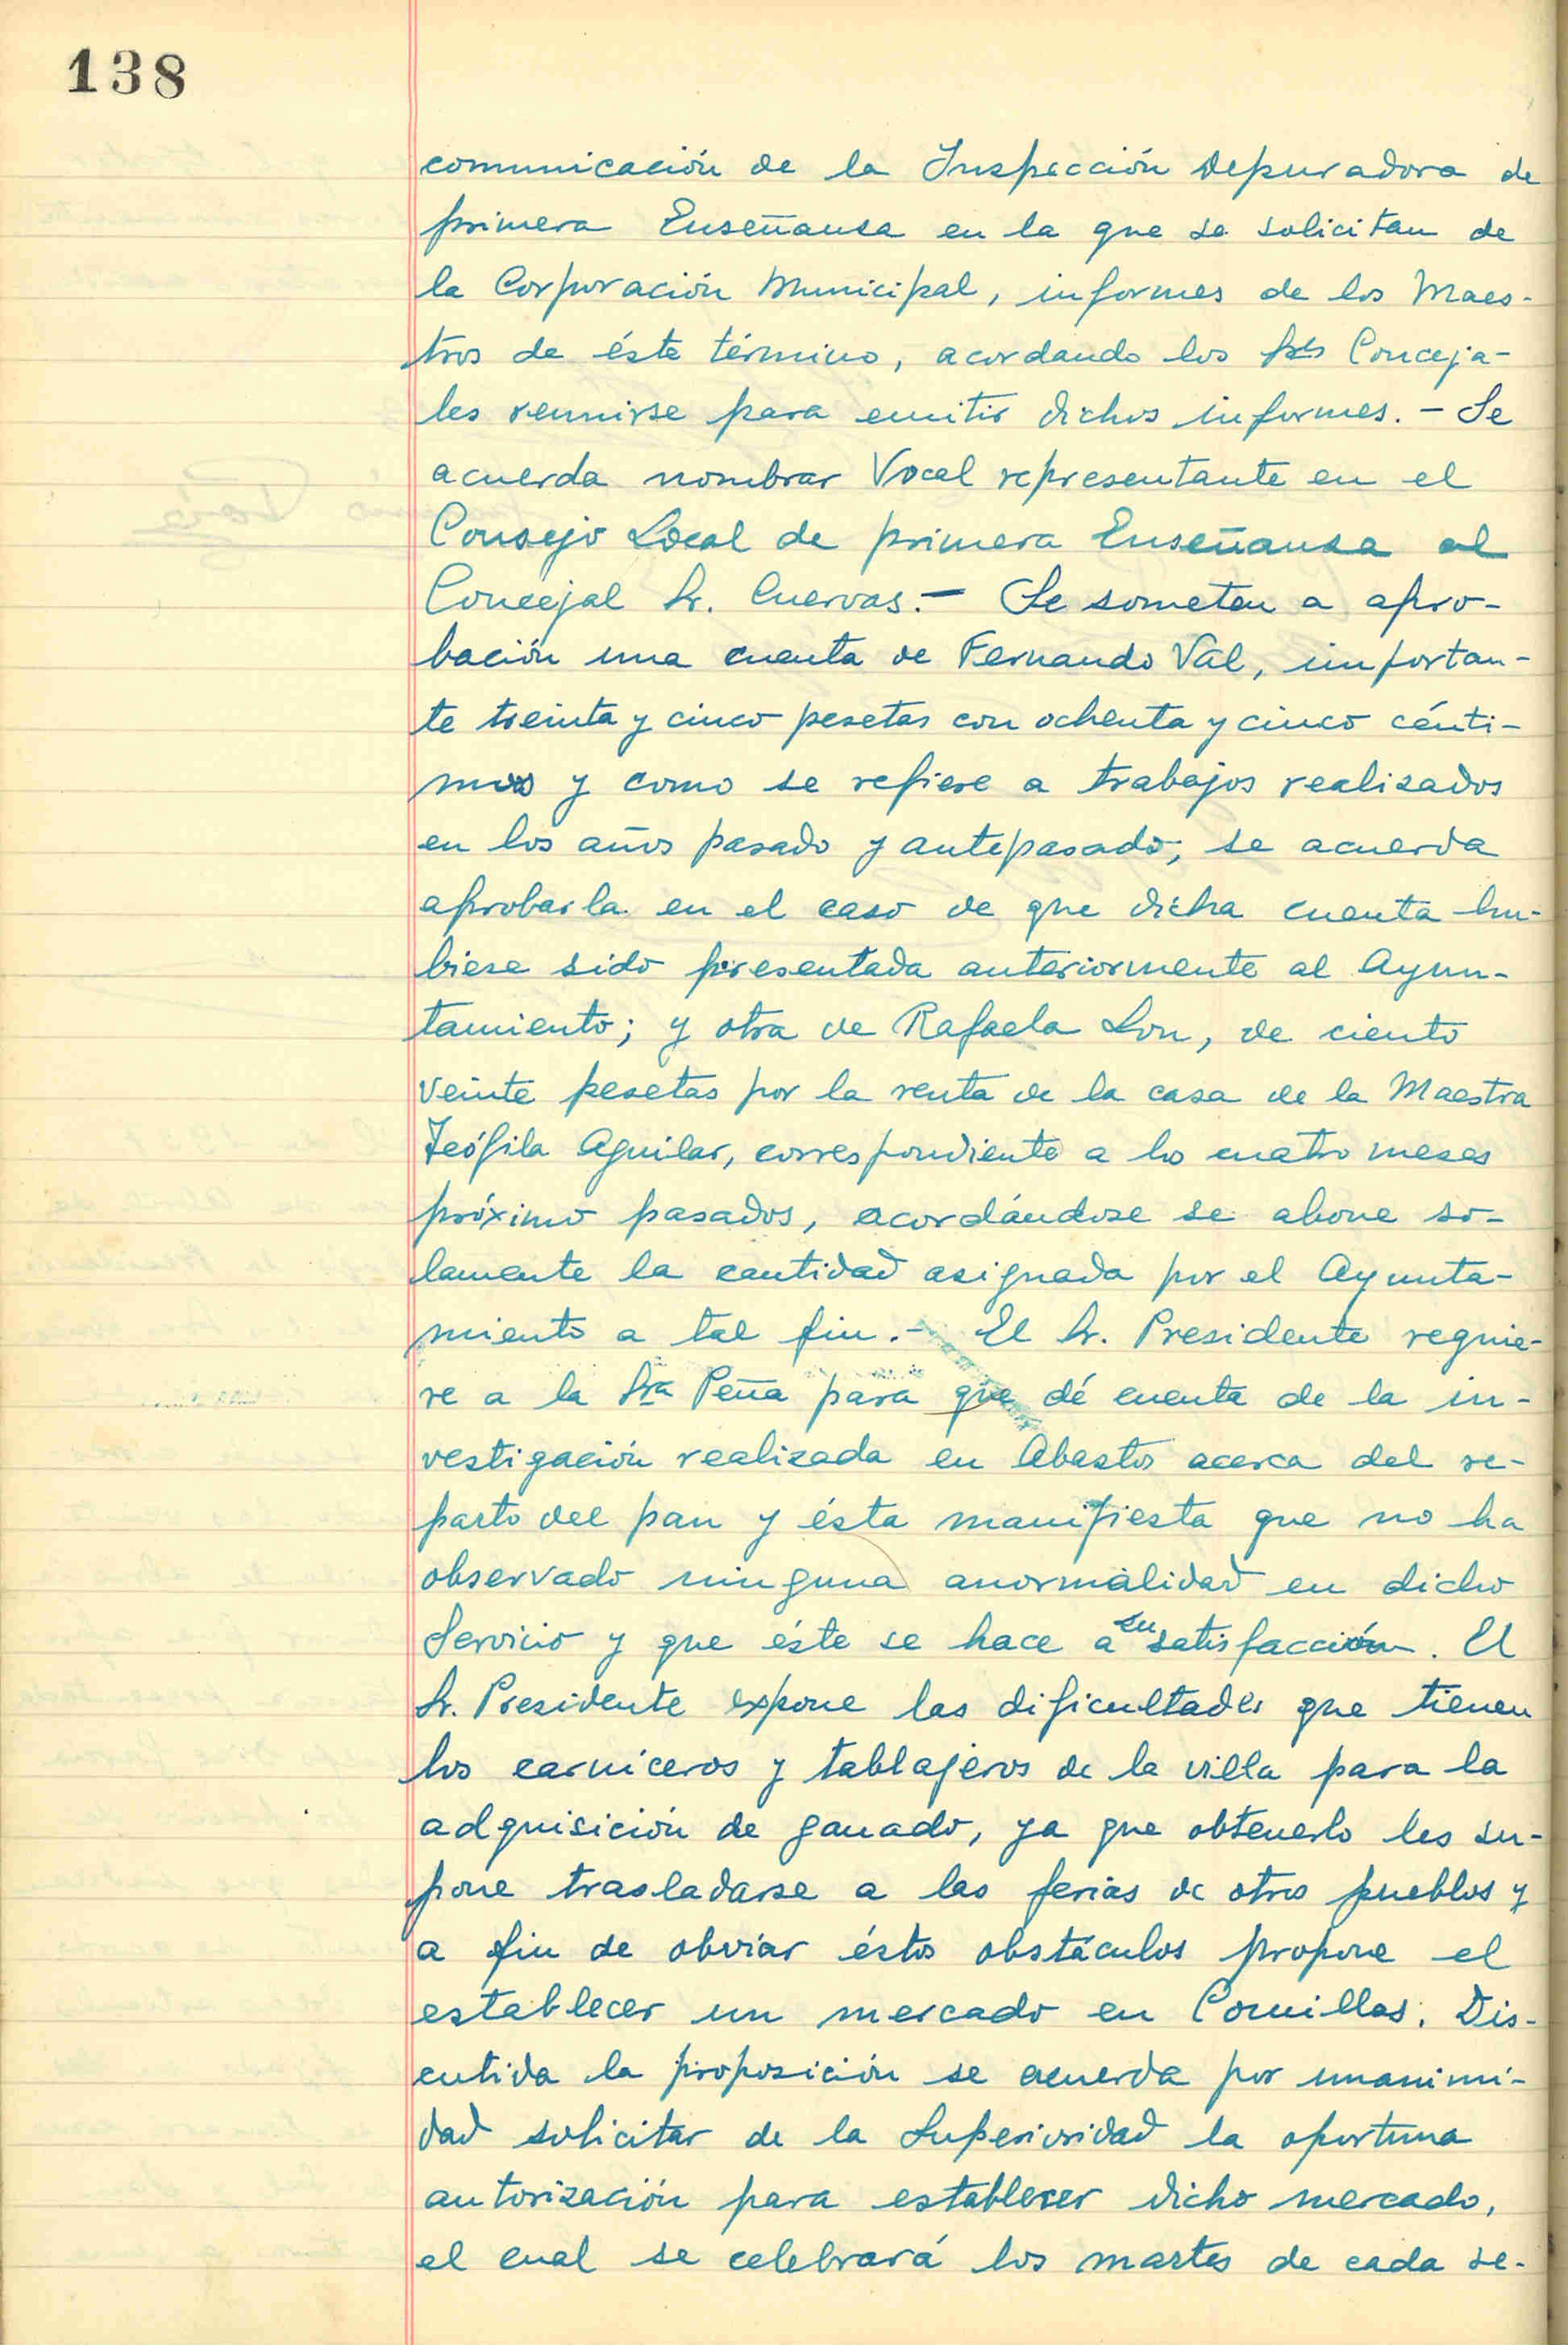 138
comunicación de la Inspección Depuradora de
primera Enseñansa en la que se solicitan de
la Corporación Municipal, informes de los Maes-
tros de éste término, acordando los Srs Conceja-
les reunirse para emitir dichos informes. - Se
acuerda nombrar Vocal representante en el
Consejo Local de primera Enseñansa al
Concejal Sr. Cuervas. - Se someten a apro-
bación una cuenta de Fernando Val, importan-
te treinta y cinco pesetas con ochenta y cinco cénti-
mos y como se refiere a trabajos realizados
en los años pasado y antepasado, se acuerda
aprobarla en el caso de que dicha cuenta hu-
biese sido presentada anteriormente al Ayun-
tamiento; y otra de Rafaela Lon, de ciento
veinte pesetas por la renta de la casa de la Maestra
Teófila Aguilar, correspondiente a lo cuatro meses
próximo pasados, acordándose se abone so-
lamente la cantidad asignada por el Ayunta-
miento a tal fin. - El Sr. Presidente requie-
re a la Sra Peña para que dé cuenta de la in-
vestigación realizada en Abastos acerca del re-
parto del pan y ésta manifiesta que no ha
observado ninguna anormalidad en dicho
Servicio y que éste se hace a su satisfacción. El
Sr. Presidente expone las dificultades que tienen
los carniceros y tablajeros de la villa para la
adquisición de ganado, ya que obtenerlo les su-
pone trasladarse a las ferias de otros pueblos y
a fin de obviar éstos obstáculos propone el
establecer un mercado en Comillas. Dis-
cutida la proposición se acuerda por unanimi-
dad solicitar de la Superioridad la oportuna
autorización para establecer dicho mercado,
el cual se celebrará los martes de cada se-